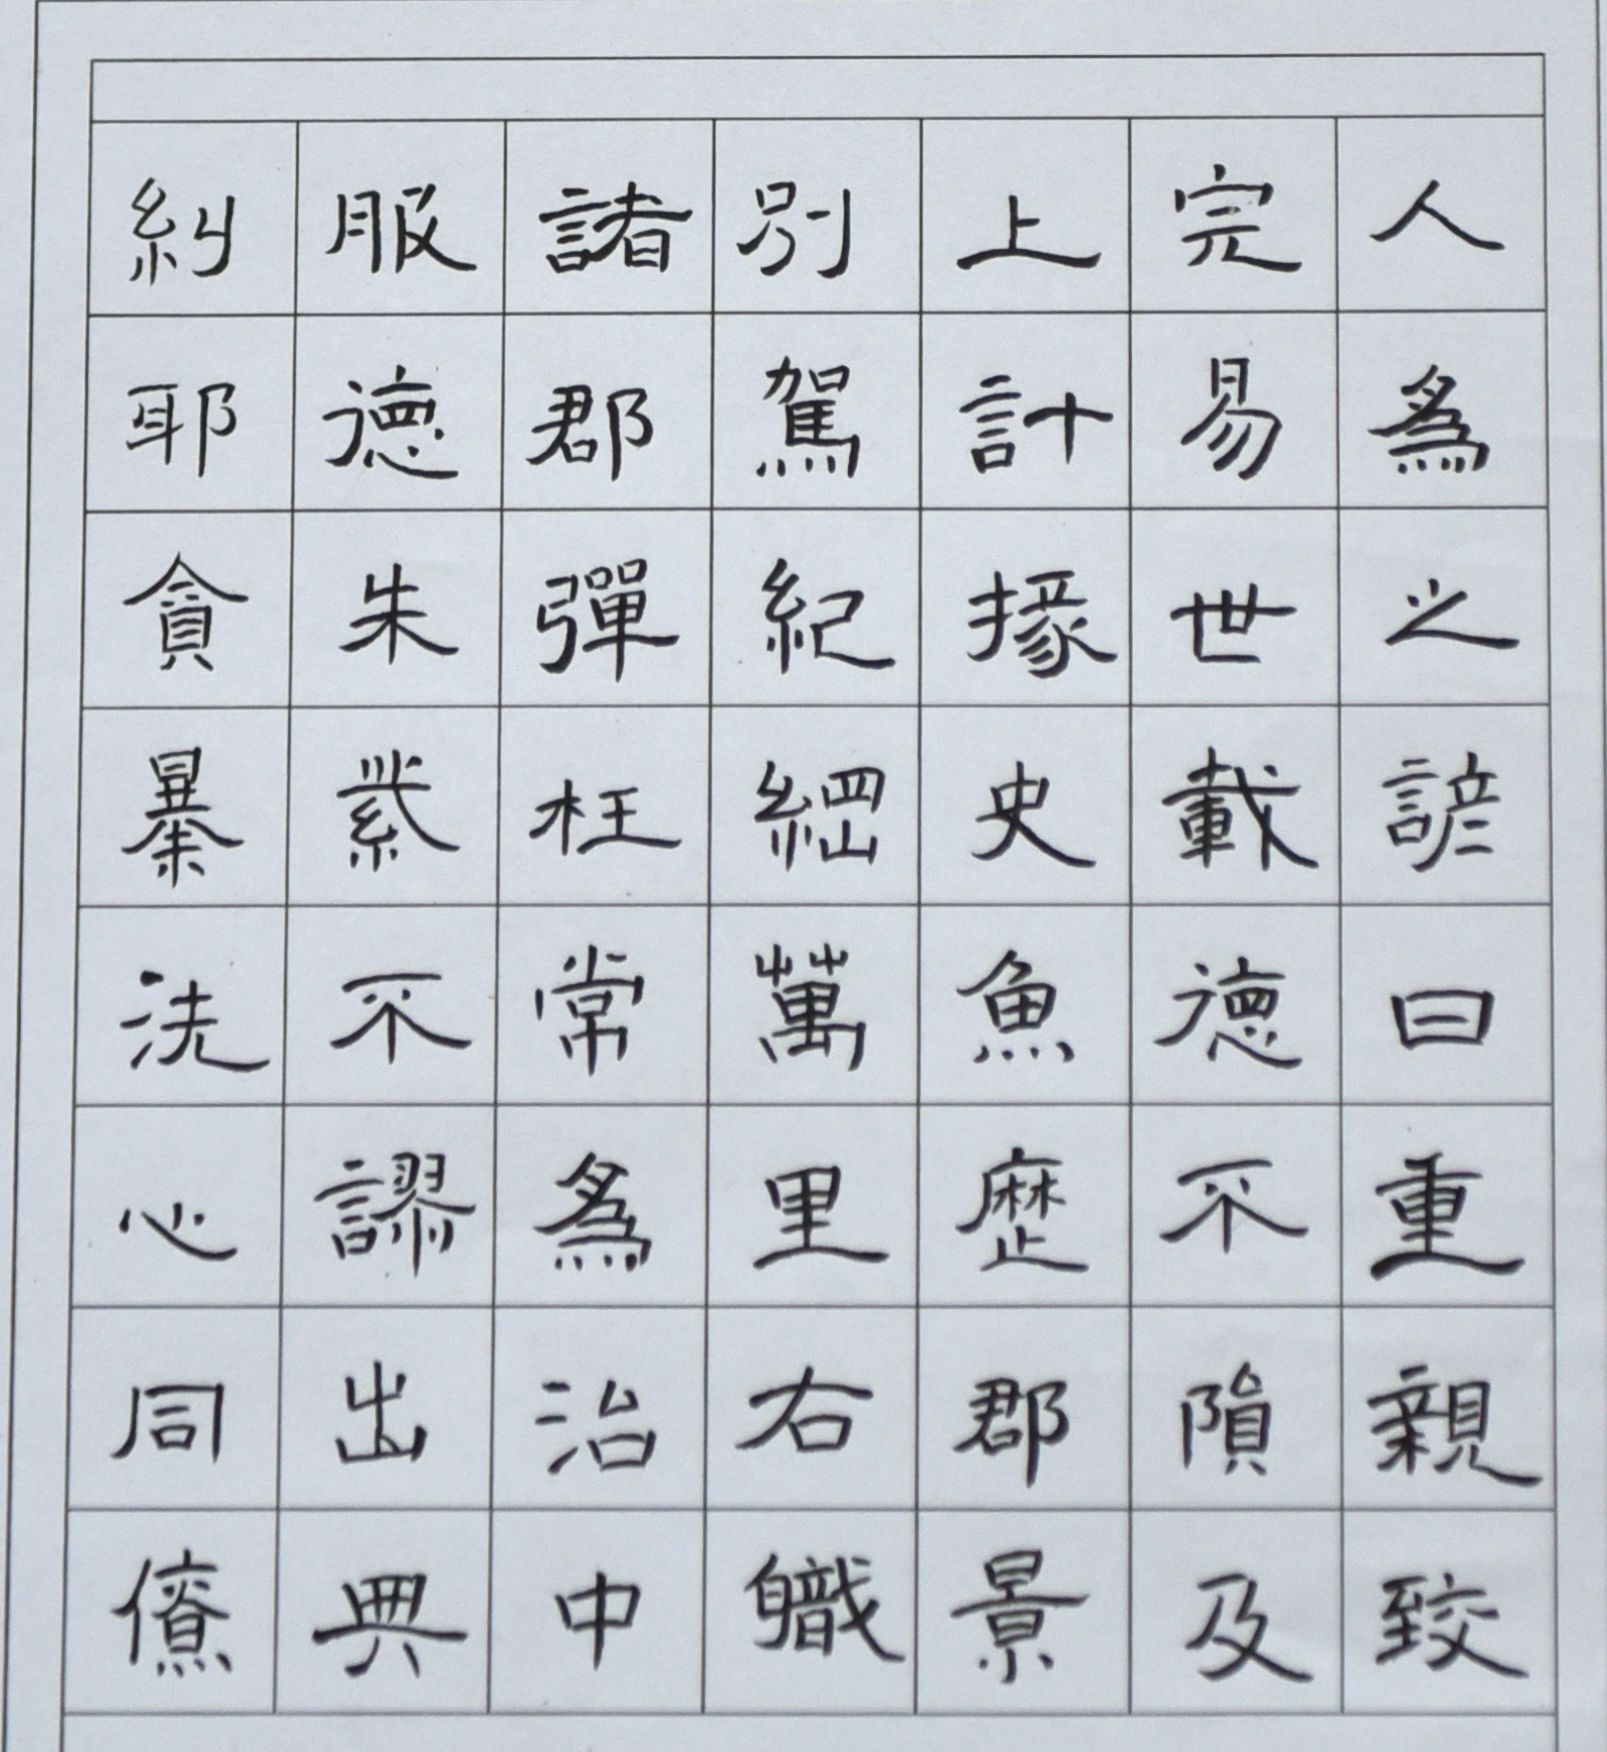 人為之諺曰重親致
完易世載德不隕及
上計掾史魚歷郡景
別駕紀綱萬里右職
諸郡彈枉常為治中
服德朱紫不謬出典
糾耶貪暴洗心同僚